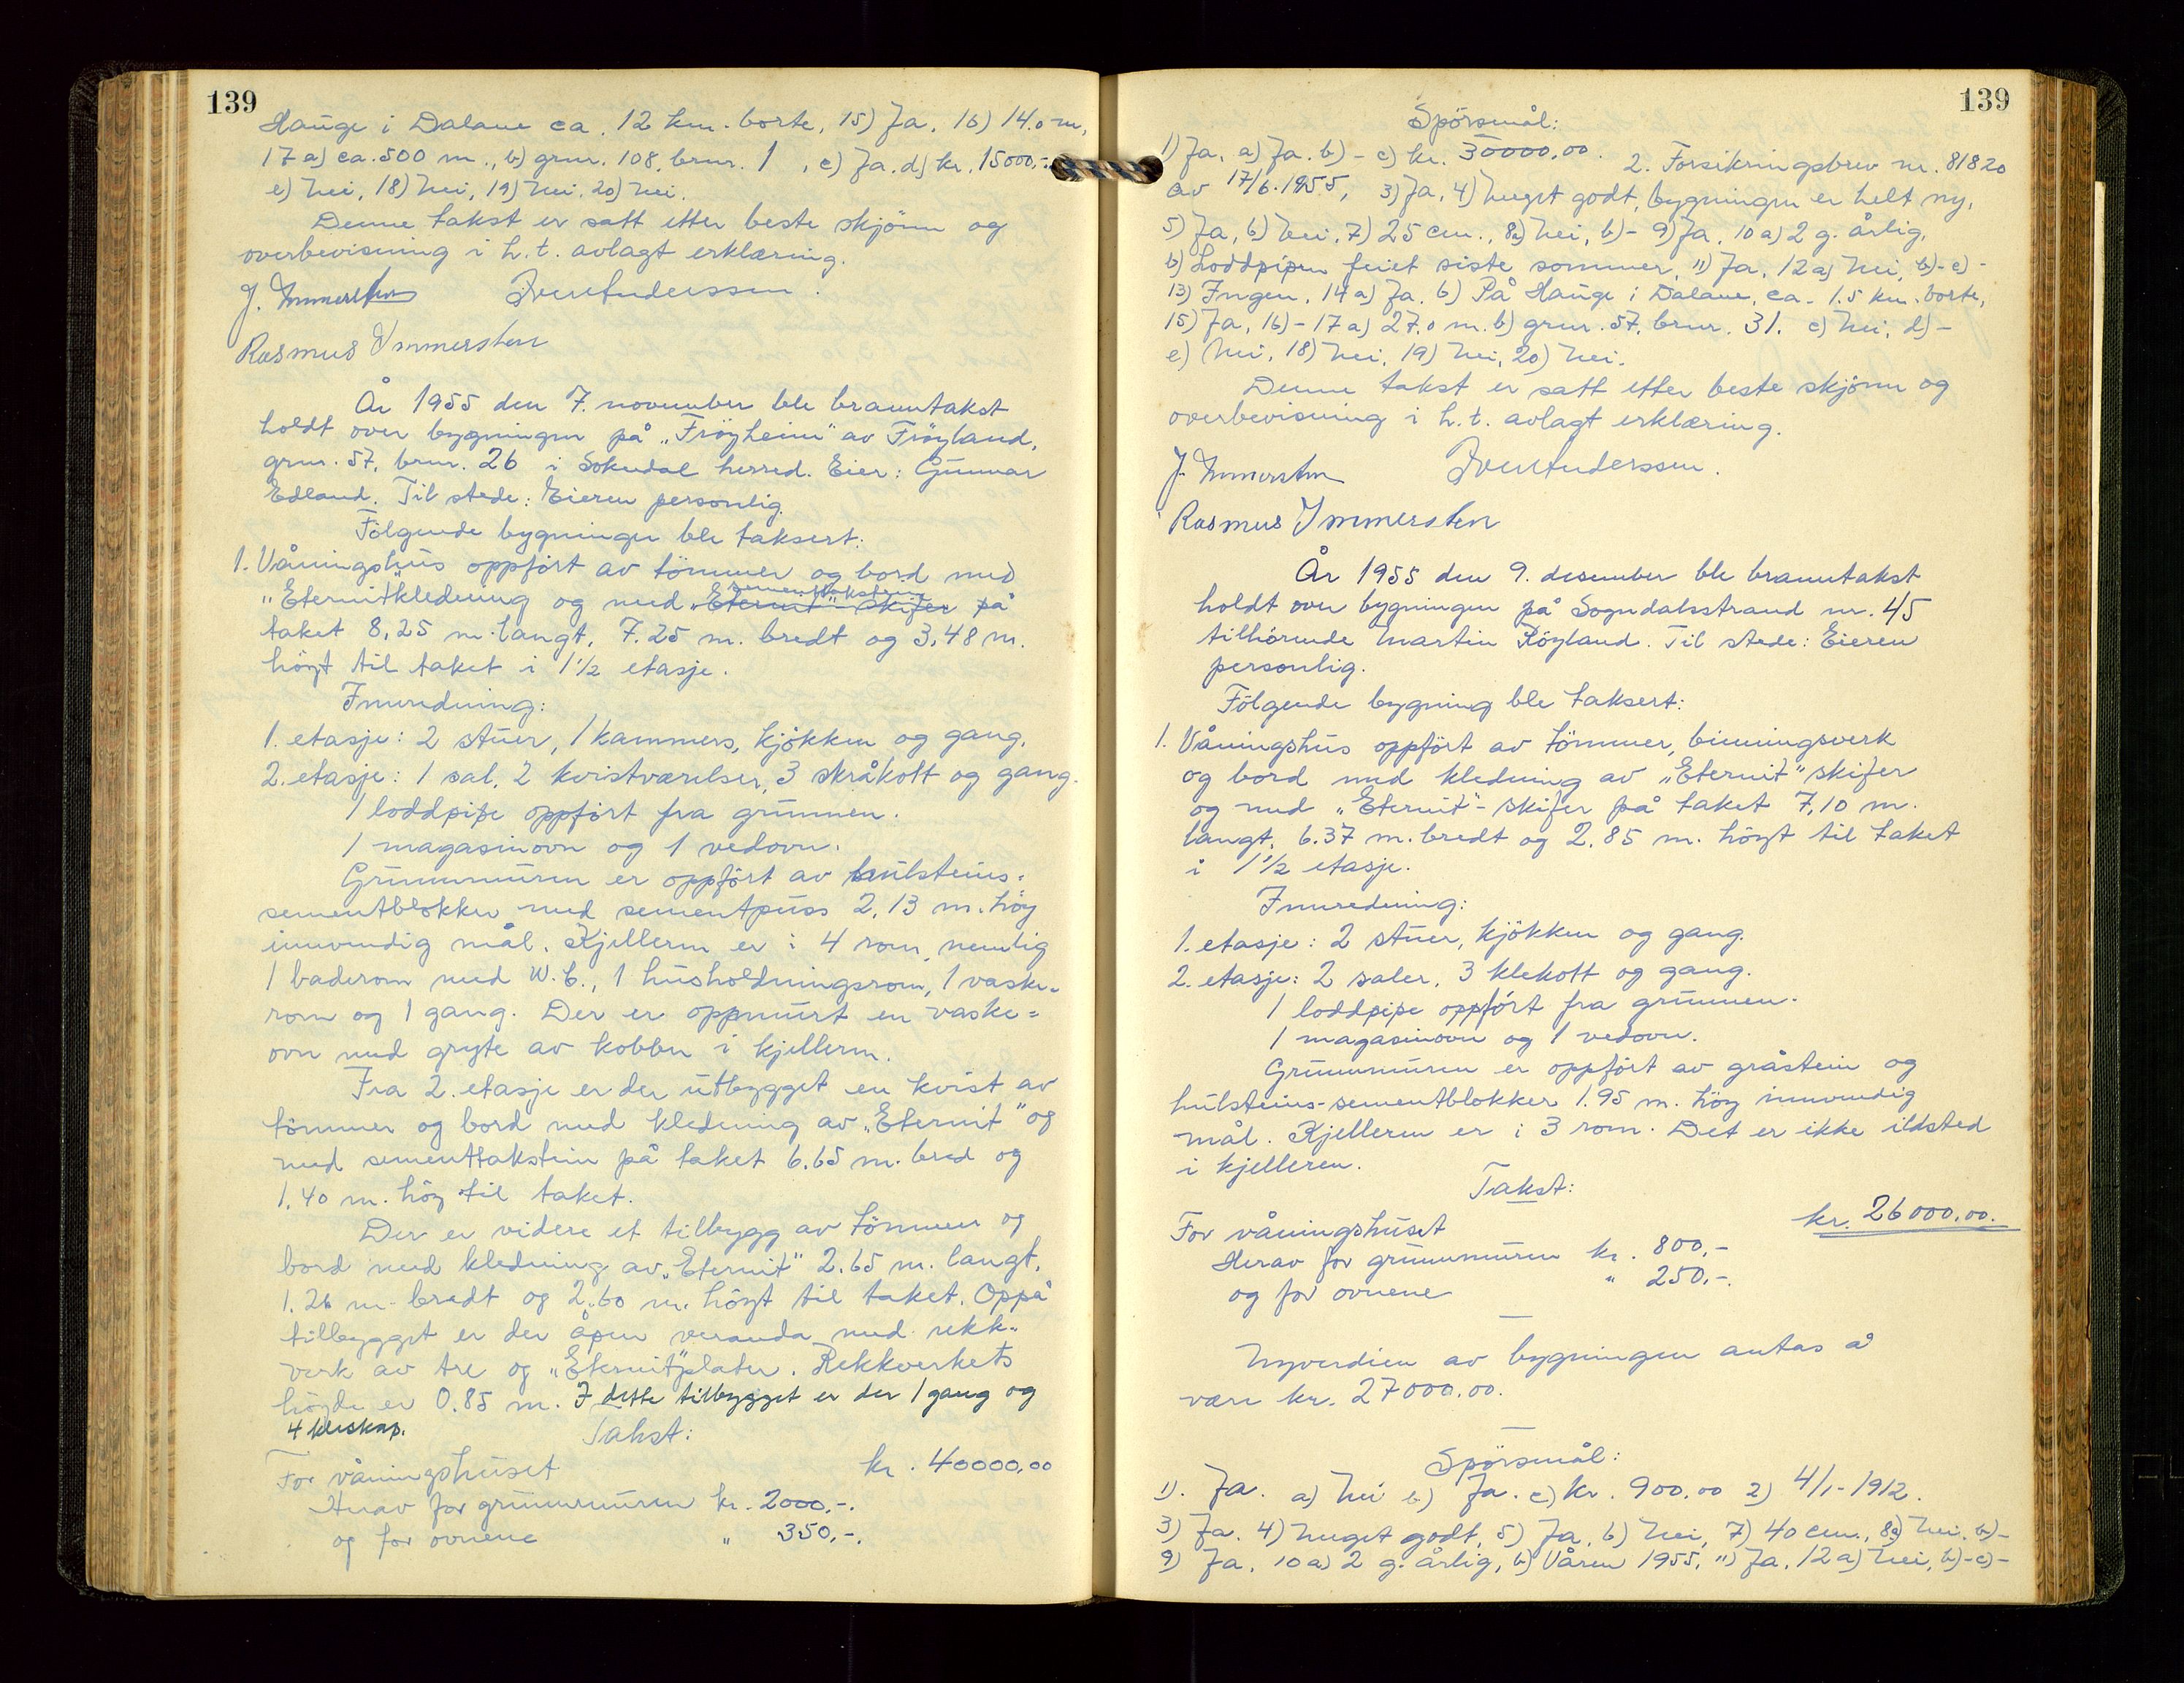 139
Hauge i Dalane ca. 12 km. borte, 15) Ja, 16) 14.0 m,
17 a) ca. 500 m., b) grnr. 108, brnr. 1, c) Ja. d) kr. 15000,-.
e) Nei, 18) Nei, 19) Nei. 20) Nei.
Denne takst er satt etter beste skjönn og
overbevisning i h.t. avlagt erklæring.
J. Immerstein Iver Anderssen.
Rasmus Immerstein
År 1955 den 7. november ble branntakst
holdt over bygningen på „Fröyheim" av Fröyland,
grnr. 57, brnr. 26 i Sokndal herred. Eier: Gunnar
Edland. Til stede: Eieren personlig.
Fölgende bygninger ble taksert:
1. Våningshus oppfört av tömmer og bord med
„Eternit"kledning og med „Eternit"-skifer sementtakstein på
taket 8,25 m. langt, 7.25 m. bredt og 3,48 m.
höyt til taket i 1½ etasje.
Innredning:
1. etasje: 2 stuer, 1 kammers, kjökken og gang.
2. etasje: 1 sal, 2 kvistværelser, 3 skråkott og gang.
1 loddpipe oppfört fra grunnen.
1 magasinovn og 1 vedovn.
Grunnmuren er oppfört av hulsteins-
sementblokker med sementpuss 2,13 m. höy
innvendig mål. Kjelleren er i 4 rom, nemlig
1 baderom med W.C., 1 husholdningsrom, 1 vaske-
rom og 1 gang. Der er oppmurt en vaske=
ovn med gryte av kobber i kjelleren.
Fra 2. etasje er der utbygget en kvist av
tömmer og bord med kledning av „Eternit" og
med sementtakstein på taket 6.65 m. bred og
1,40 m. höy til taket.
Der er videre et tilbygg av tömmer og
bord med kledning av „Eternit" 2.65 m. langt,
1.26 m. bredt og 2.60 m. höyt til taket. Oppå
tilbygget er der åpen veranda med rekk-
verk av tre og „Eternit"plater. Rekkverkets
höyde er 0.85 m. I dette tilbygget er der 1 gang og
4 kleskap.
Takst:
For våningshuset kr. 40000,00
Herav for grunnmuren kr. 2000,-.
og for ovnene " 350,-.
139
Spörsmål:
1) Ja, a) Ja. b) - c) kr. 30000,00. 2. Forsikringsbrev nr. 81820
av 17/6.1955, 3) Ja, 4) Meget godt, bygningen er helt ny,
5) Ja, 6) Nei, 7) 25 cm., 8a) Nei, b) - 9) Ja, 10 a) 2 g. årlig,
b) Loddpipen feiet siste sommer, 11) Ja, 12 a) Nei, b)- c) -
13) Ingen, 14 a) Ja. b) På Hauge i Dalane, ca. 1.5 km. borte,
15) Ja, 16) - 17 a) 27.0 m. b) grnr. 57, brnr. 31. c) Nei, d) -
e) Nei, 18) Nei, 19) Nei, 20) Nei.
Denne takst er satt etter beste skjönn og
overbevisning i h.t. avlagt erklæring.
J. Immerstein Iver Anderssen.
Rasmus Immerstein
År 1955 den 9. desember ble branntakst
holdt over bygningen på Sogndalsstrand nr. 45
tilhörende Martin Röyland. Til stede: Eieren
personlig.
Fölgende bygning ble taksert:
1. Våningshus oppfört av tömmer, binningsverk
og bord med kledning av „Eternit" skifer
og med „Eternit"-skifer på taket 7,10 m.
langt, 6.37 m. bredt og 2,85 m. höyt til taket
i 1½ etasje.
Innredning:
1. etasje: 2 stuer, kjökken og gang.
2. etasje: 2 saler, 3 klekott og gang.
1 loddpipe oppfört fra grunnen.
1 magasinovn og 1 vedovn.
Grunnmuren er oppfört av gråstein og
hulsteins-sementblokker 1.95 m. höy innvendig
mål. Kjelleren er i 3 rom. Det er ikke ildsted
i kjelleren.
Takst:
For våningshuset kr. 26000,00.
Herav for grunnmuren kr. 800,-
og for ovnene " 250,-.
Nyverdien av bygningen antas å
være kr. 27000.00.
Spörsmål:
1). Ja. a) Nei b) Ja. c) kr. 900,00 2) 4/1-1912.
3) Ja. 4) Meget godt, 5) Ja, 6) Nei, 7) 40 cm., 8a) Nei. b)-
9) Ja, 10 a) 2 g. årlig, b) Våren 1955, 11) Ja, 12 a) Nei, b)- c)-